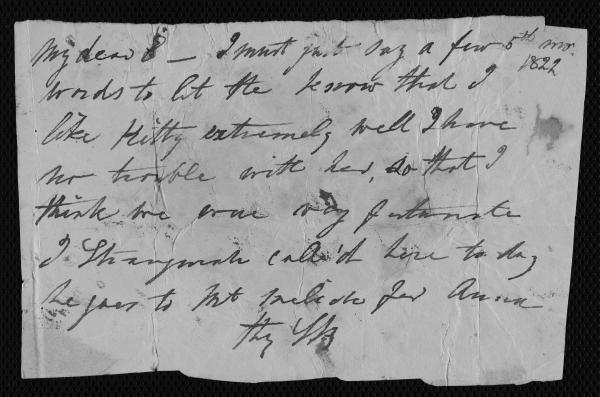 My dear S — I must just say a few 5th mo.
1822
words to let thee know that I
like Kitty extremely well I have
no trouble with her, so that I
think we were very fortunate
J Strangman call'd here to day
he goes to Mt for Anna
thy